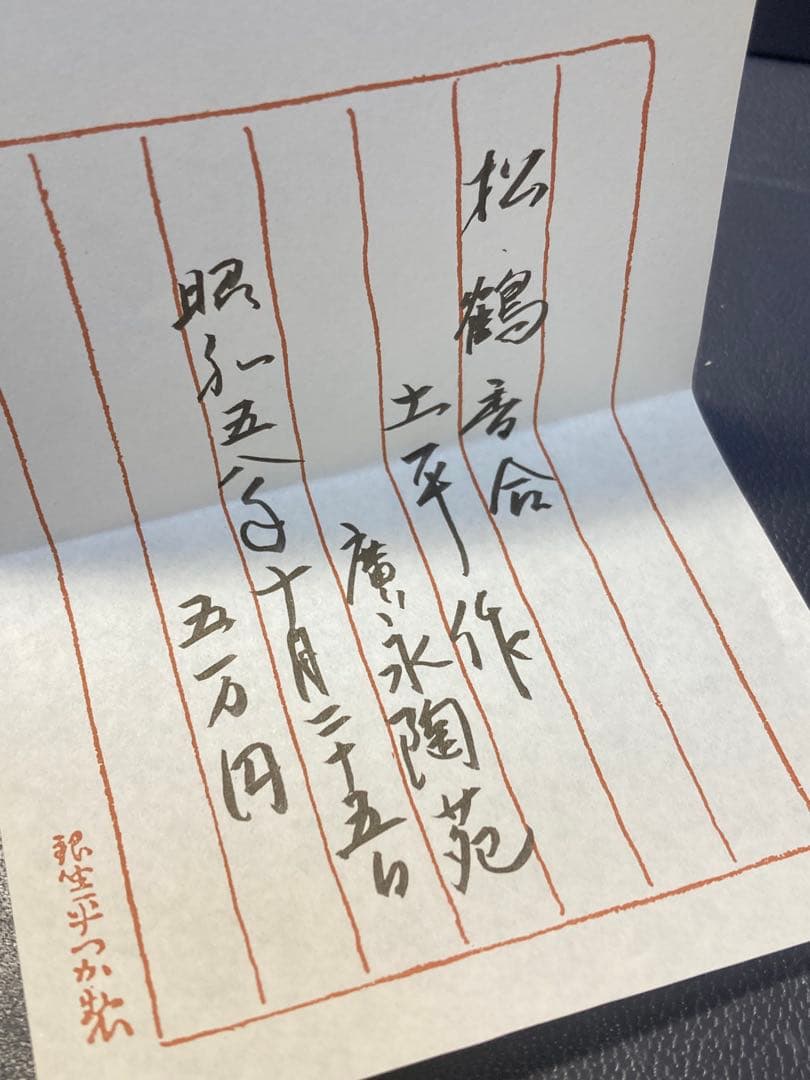 松鶴香合
土平作
廣永陶苑
昭和五八年十月二十五日
五万円
銀座平つか製